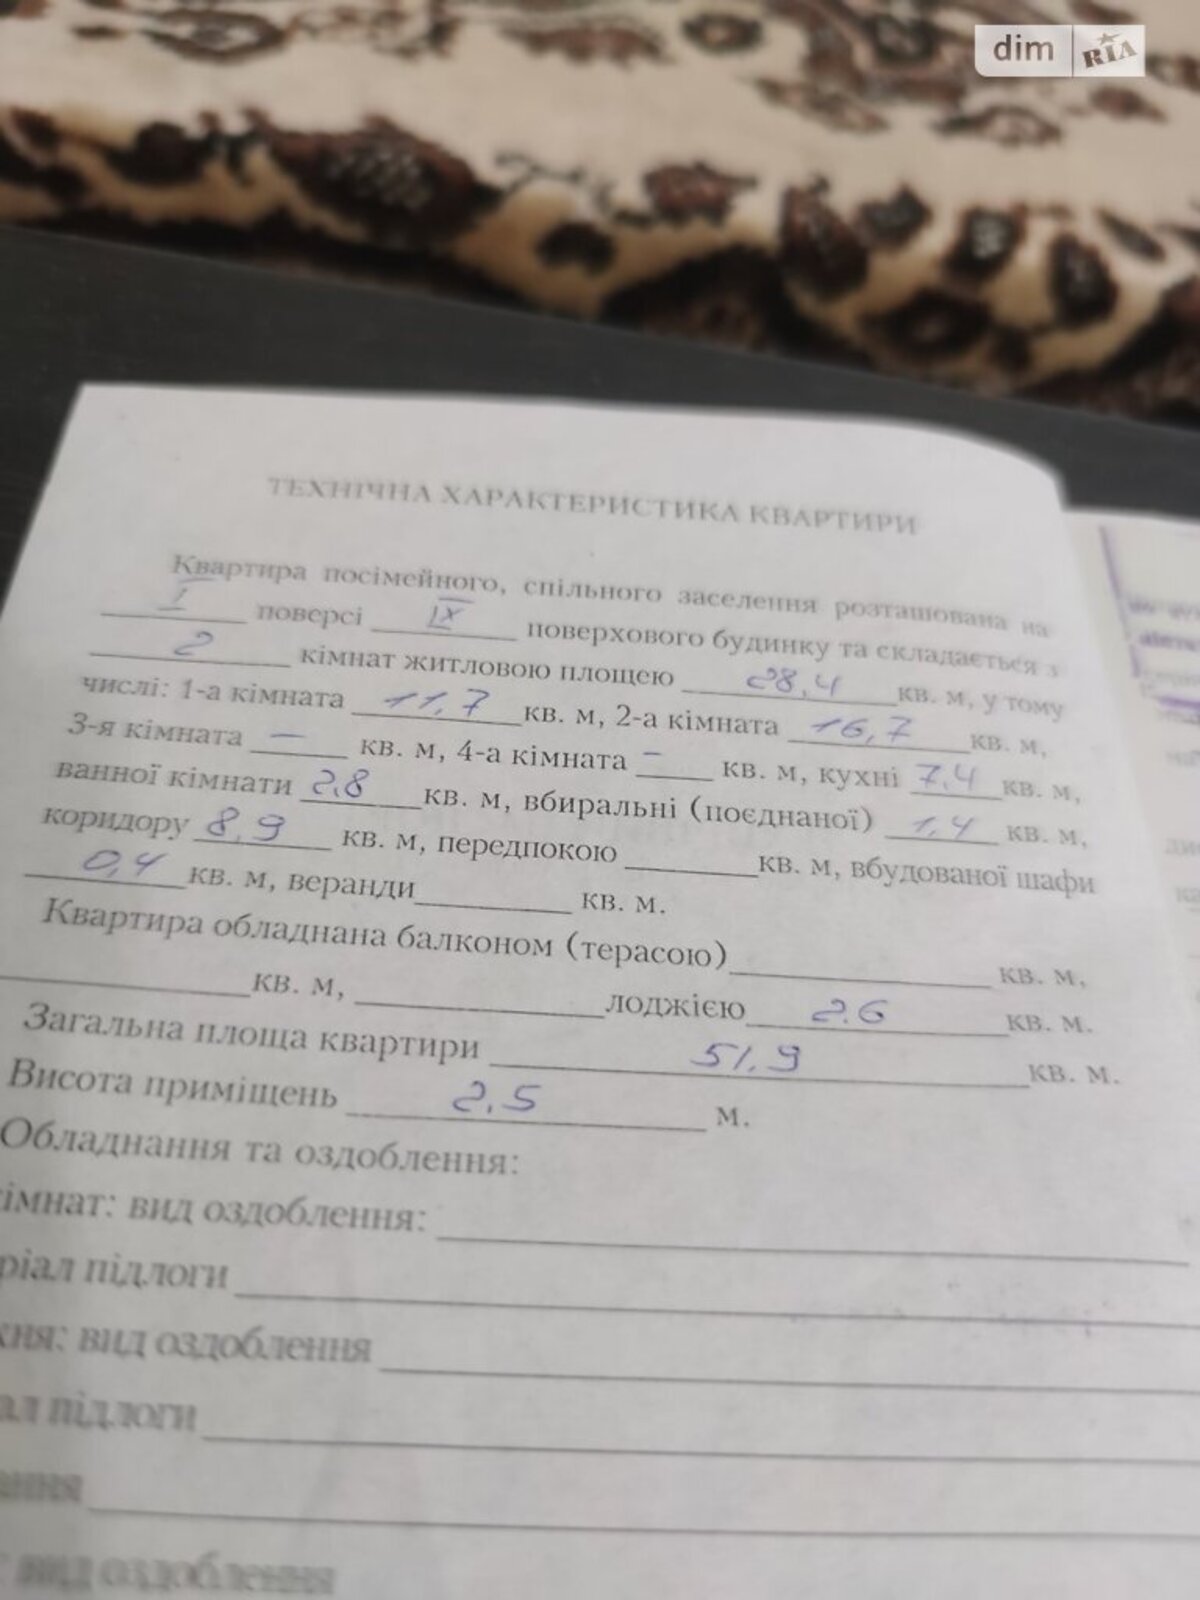 dim RIA
ТЕХНІЧНА ХАРАКТЕРИСТИКА КВАРТИРИ
Квартира посімейного, спільного заселення розташована на
I поверсі IX поверхового будинку та складається з
2 кімнат житловою площею 28,4 кв. м, у тому
числі: 1-а кімната 11,7 кв. м, 2-а кімната 16,7 кв. м,
3-я кімната — кв. м, 4-а кімната – кв. м, кухні 7,4 кв. м,
ванної кімнати 2,8 кв. м, вбиральні (поєднаної) 1,4 кв. м,
коридору 8,9 кв. м, передпокою кв. м, вбудованої шафи
0,4 кв. м, веранди кв. м.
Квартира обладнана балконом (терасою) кв. м,
кв. м, лоджією 2.6 кв. м.
Загальна площа квартири 51,9 кв. м.
Висота приміщень 2,5 м.
Обладнання та оздоблення:
імнат: вид оздоблення:
ріал підлоги
хня: вид оздоблення
ал підлоги
вид оздоблення